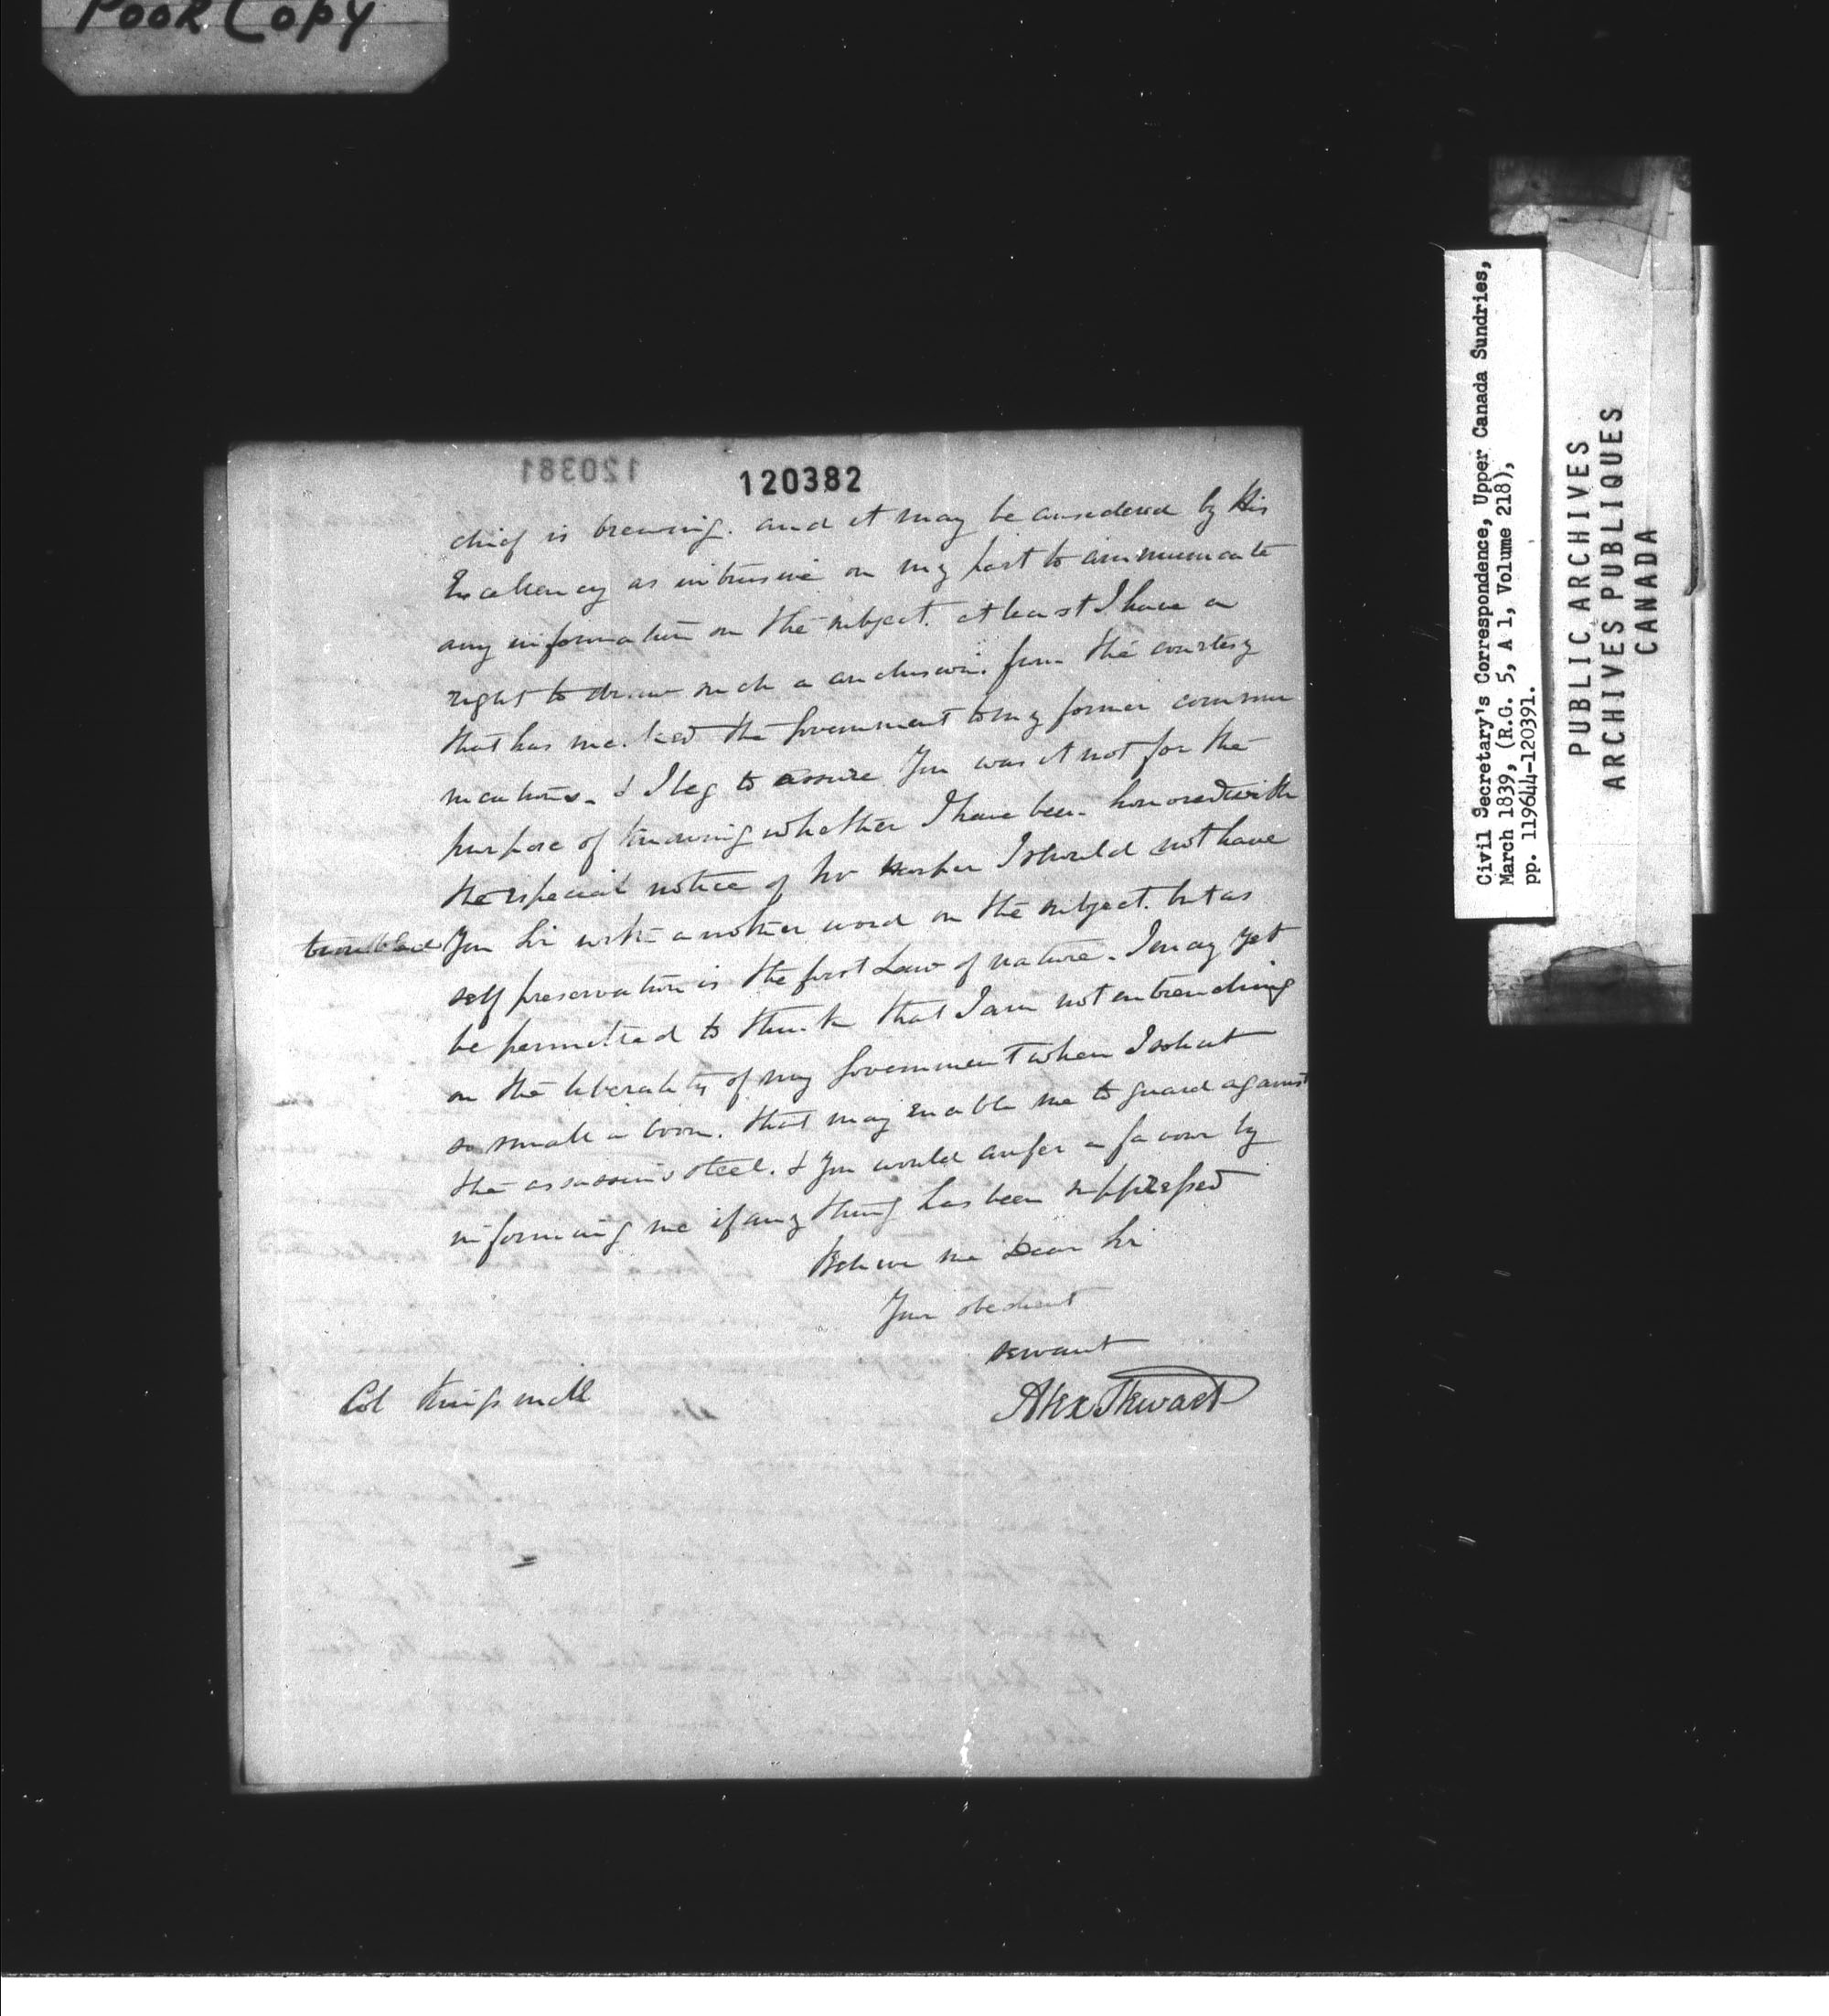 Poor Copy
120381
120382
chief is brewing. and it may be considered by His
Excellency as intrusive on my part to communicate
any information on the subject. at least I have a
right to draw such a conclusion. from the courtesy
that has marked the Government to my former commu
nications. & I beg to assure You was it not for the
purpose of knowing whether I have been honored with
the special notice of Mr I should not have
troubled You Sir with another word on the subject. but as
self preservation is the first Law of nature. I may yet
be permitted to think that I am not entrenching
on the liberality of my Government when I solicit
so small a boon. that may enable me to guard against
the assassins steel. & You would confer a favour by
informing me if any thing has been suppressed
Believe me Dear Sir
Your obedient
servant
Alex Stewart
Col Kingsmill
Civil Secretary's Correspondence, Upper Canada Sundries,
March 1839, (R.G. 5, A 1, Volume 218),
pp. 119644-120391.
PUBLIC ARCHIVES
ARCHIVES PUBLIQUES
CANADA